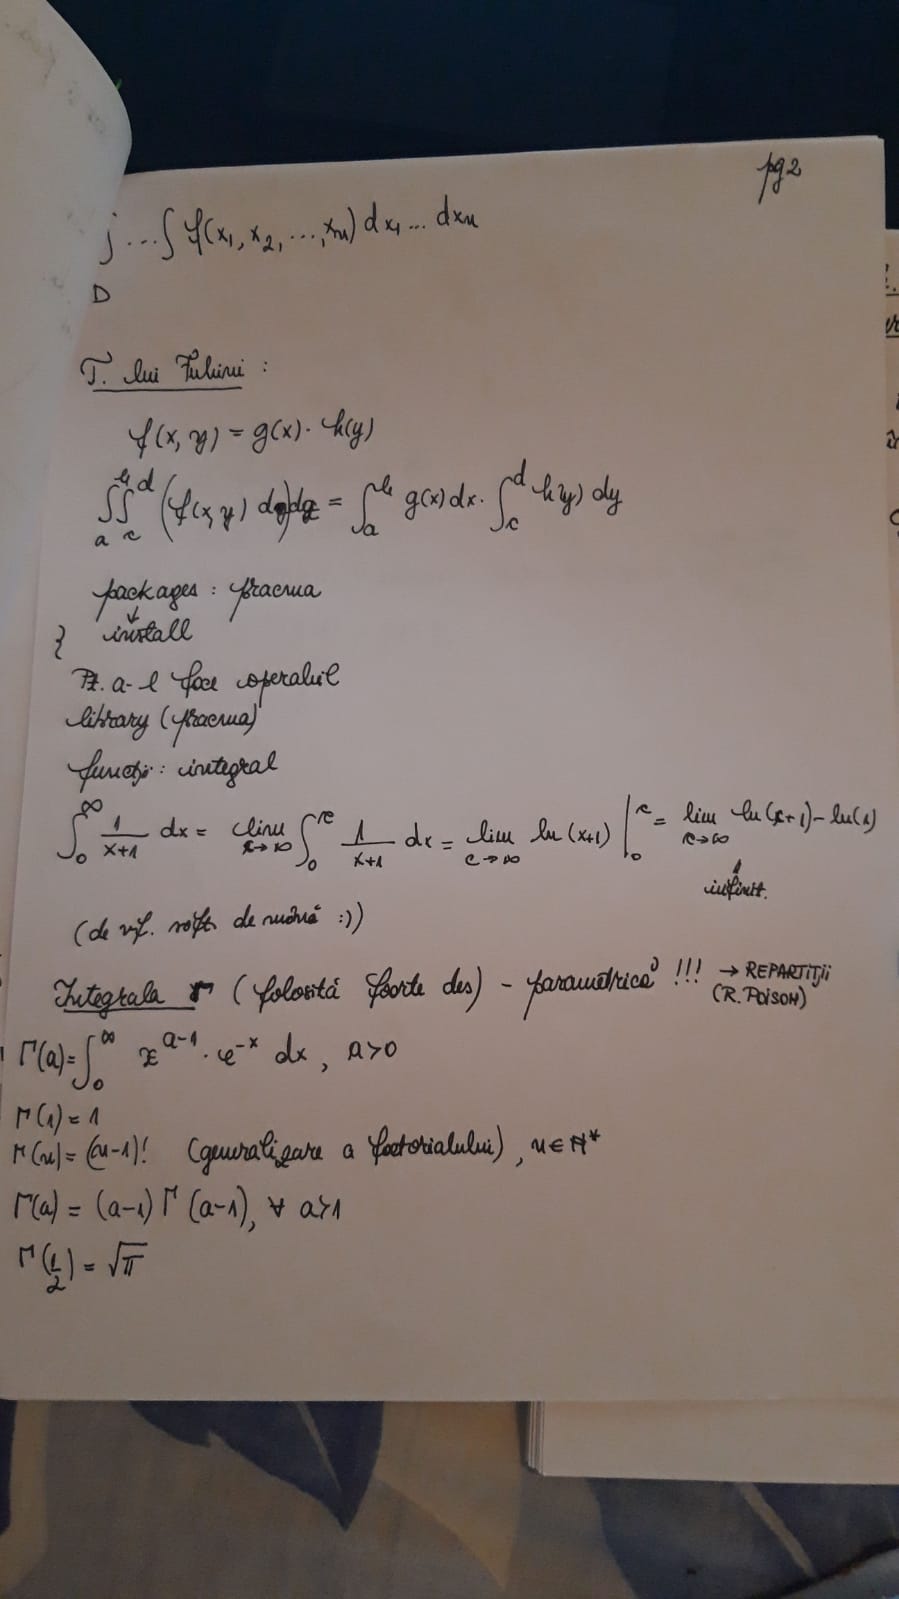 pg2
∫...∫ f(x₁, x₂, ..., xₙ) dx₁ ... dxₙ
D
T. lui Fubini :
f(x, y) = g(x) · h(y)
∫ₐᵇ∫꜀ᵈ (f(x, y) dy)dx = ∫ₐᵇ g(x) dx · ∫꜀ᵈ h(y) dy
packages : pracma
↓
} install
Pt. a-l face operabil
library (pracma)
funcții : integral
∫₀^∞ 1/(x+1) dx = lim c→∞ ∫₀^c 1/(x+1) dx = lim c→∞ ln (x+1) |₀^c = lim c→∞ ln (c+1) - ln(1)
infinit.
(de vf. de :))
Integrala Γ (folosită foarte des) - parametrică !!! → REPARTIȚII
(R. POISON)
Γ(a) = ∫₀^∞ x^(a-1) · e^(-x) dx , a>0
Γ(1) = 1
Γ(n) = (n-1)! (generalizare a factorialului) , n ∈ N*
Γ(a) = (a-1) Γ (a-1), ∀ a>1
Γ(1/2) = √π